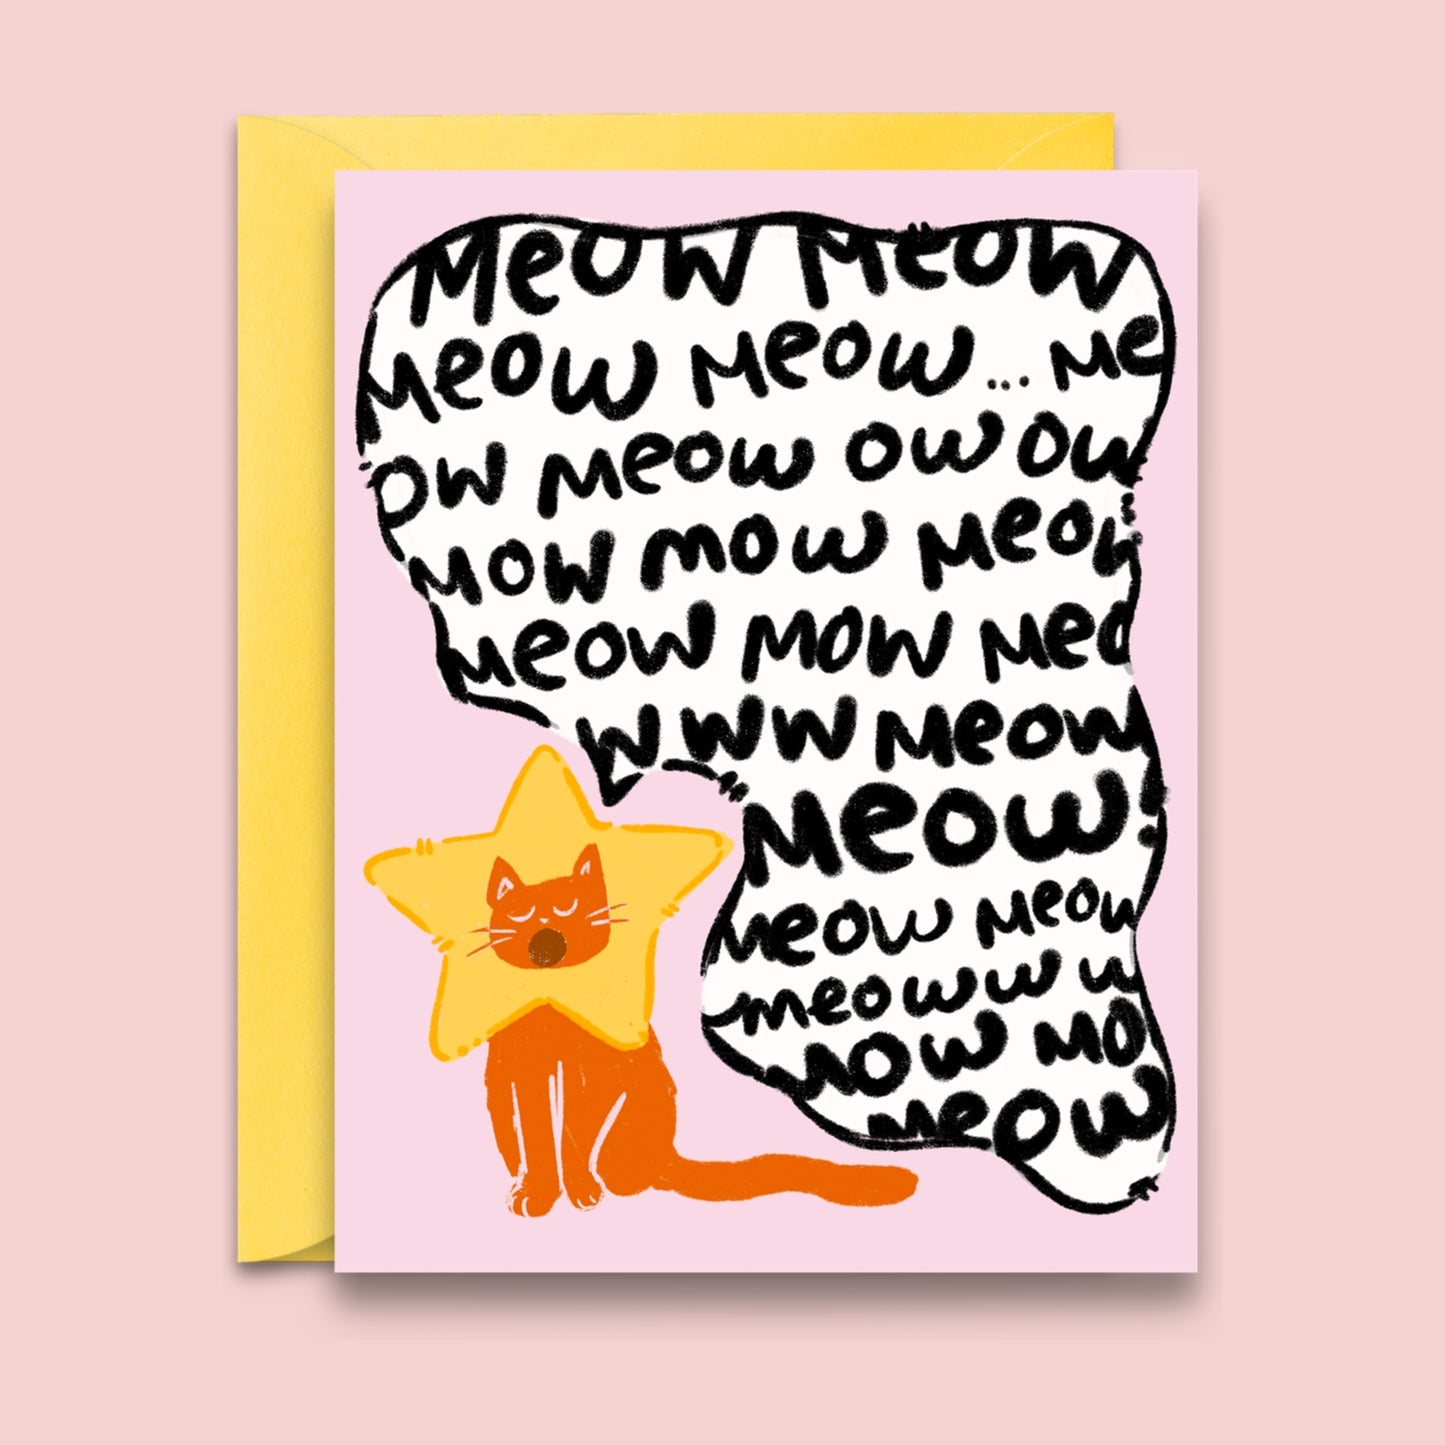 MeOW MeOW
MeOW MeOW... Me
OW MeOW OW OW
MOW MOW MeOW
MeOW MOW MeO
W W W MeOW
MeOW!
MeOW MeOW
MeOWW W
MOW MO
MeOW